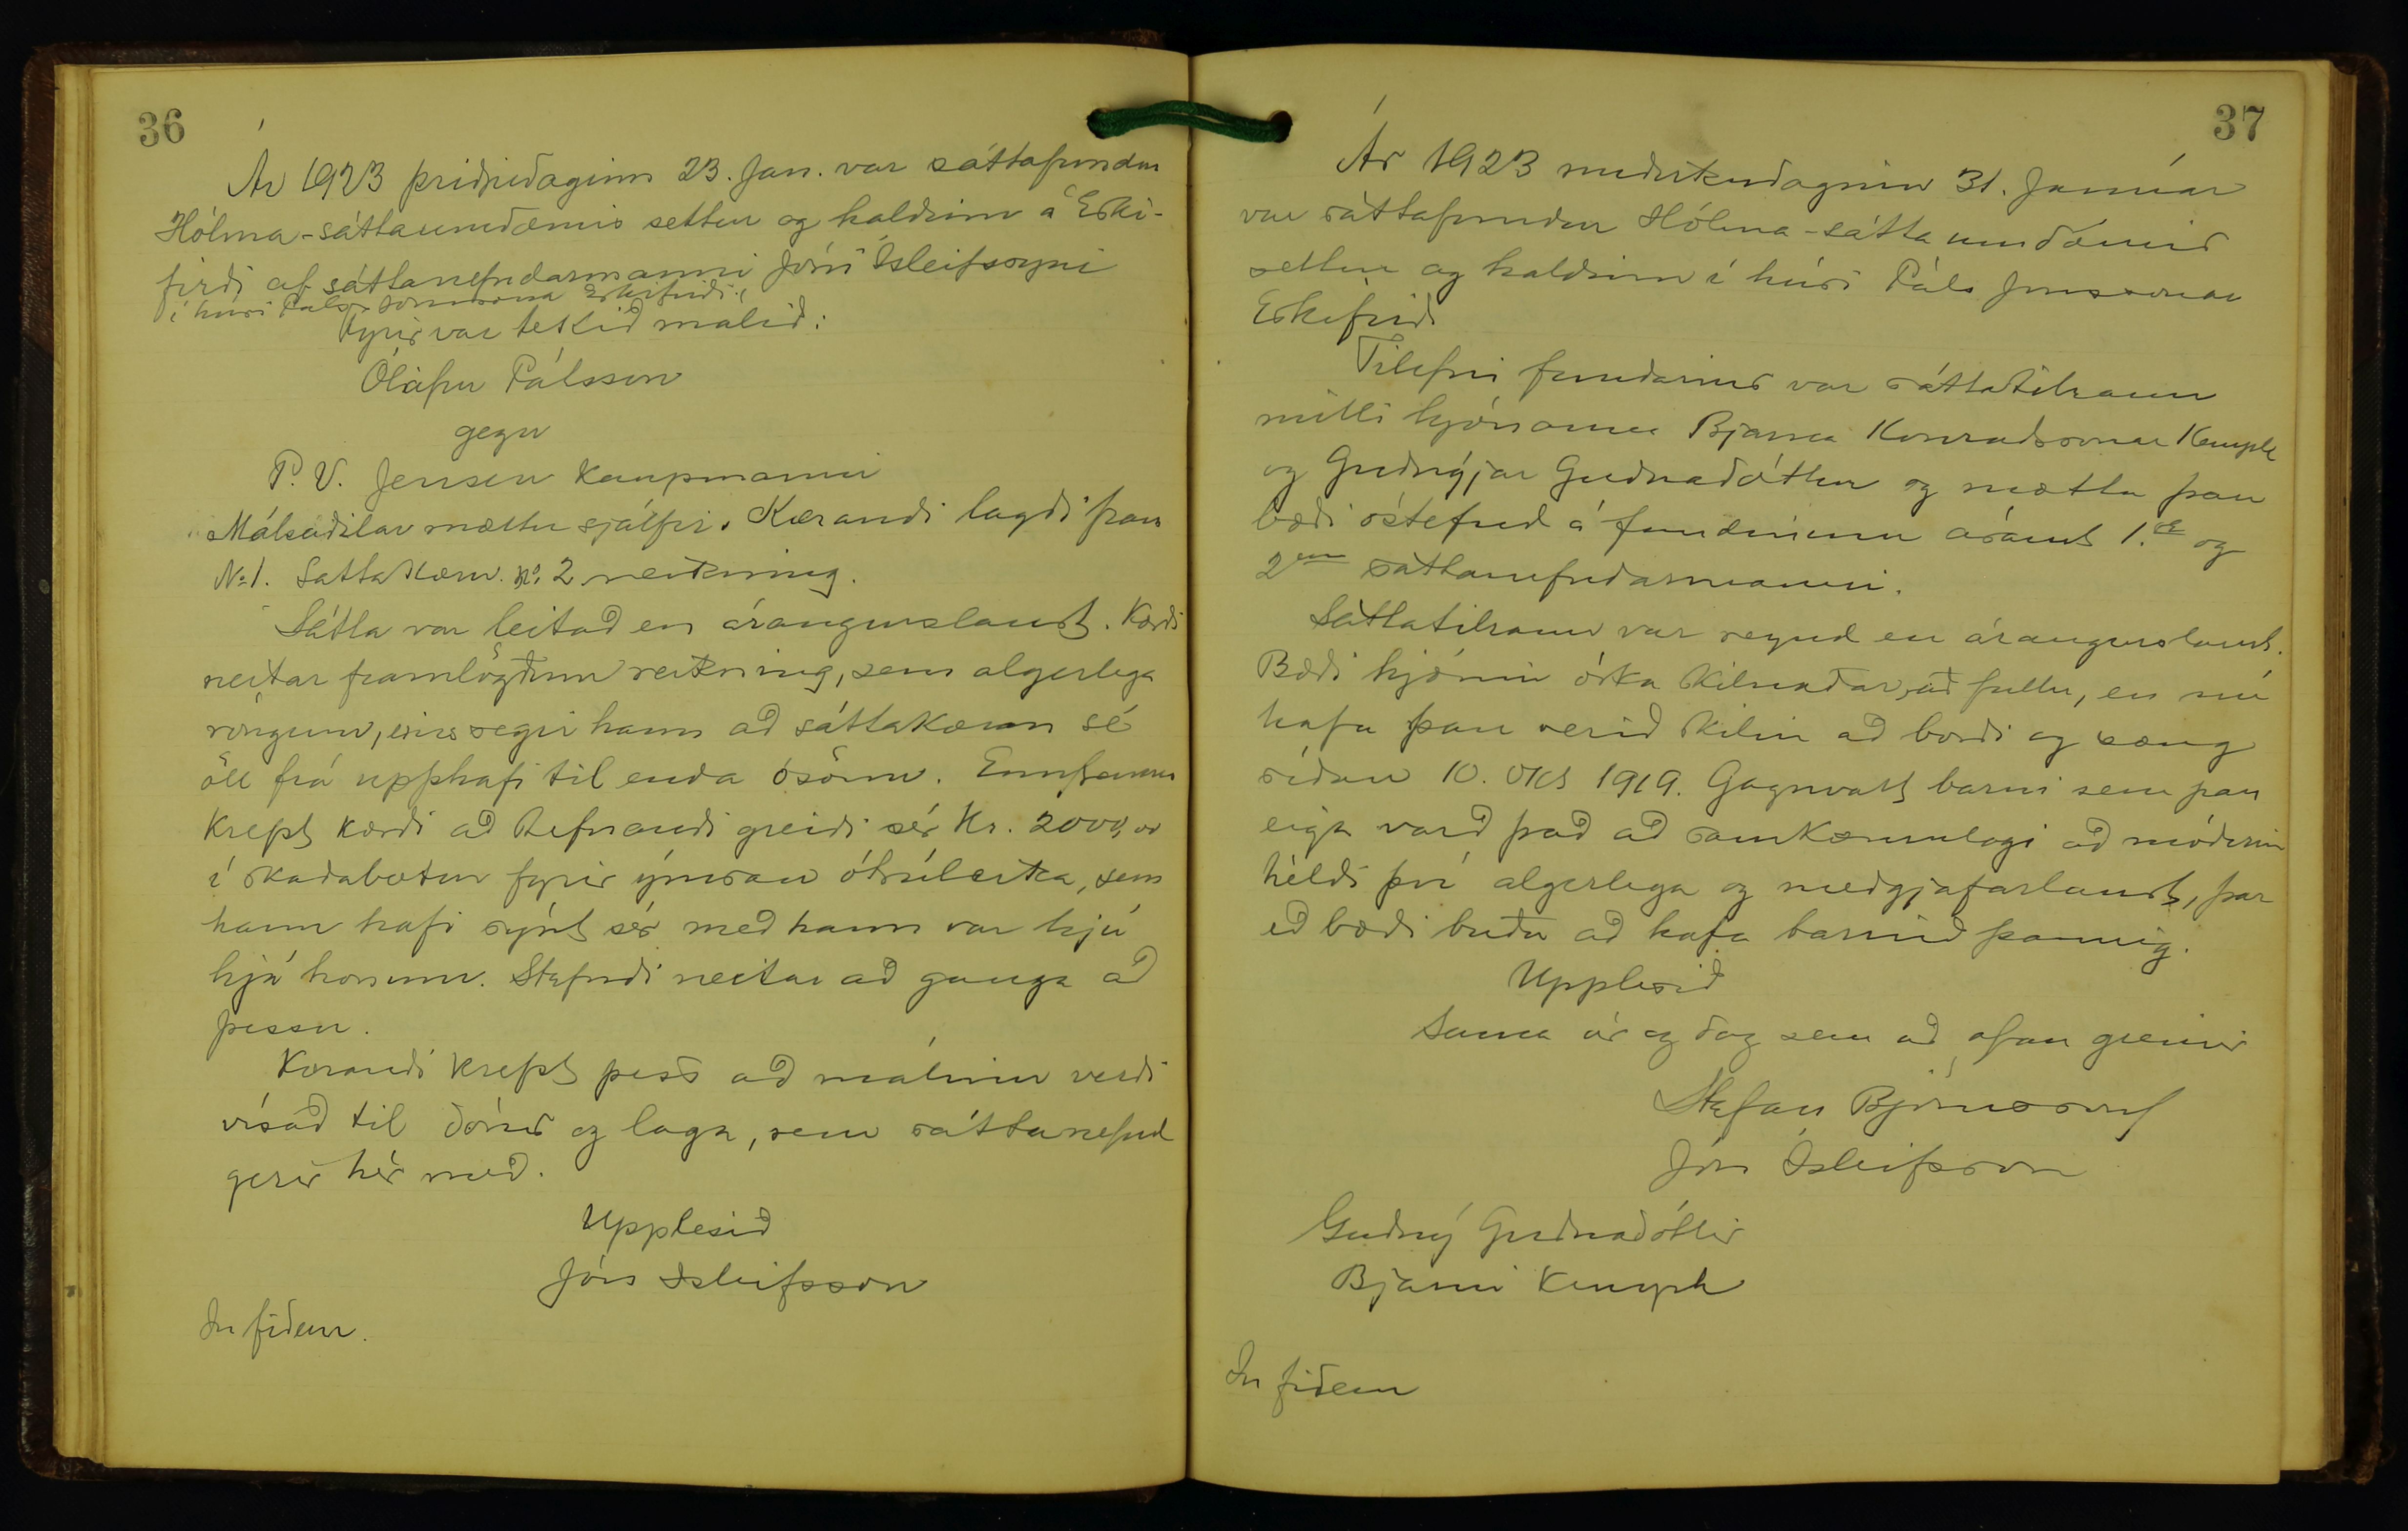 36
Ár 1923 þriðjudaginn 23. Jan. var sáttafundur
Hólma-sáttaumdæmis settur og haldinn á Eski-
firði af sáttanefndarmanni Jóni Ísleifssyni
í húsi Páls Jónssonar Eskifirði.
Fyrir var tekið málið:
Ólafur Pálsson
gegn
P. V. Jensen Kaupmanni
Málsaðilar mættu sjálfir. Kærandi lagði fram
No 1. Sáttakæru. No. 2 reikning.
Sátta var leitað en árangurslaust. Kærði
neitar framlögðum reikning, sem algerlega
röngum, eins segir hann að sáttakæran sé
öll frá upphafi til enda ósönn. Ennfremur
krefst kærði að stefnandi greiði sér Kr. 2000,00
í skaðabætur fyrir ýmsan ótrúleika, sem
hann hafi sýnt sér með hann var hjú
hjá honum. Stefndi neitar að ganga að
þessu.
Kærandi krefst þess að málinu verði
vísað til dóms og laga, sem sáttanefnd
gerir hér með.
Upplesið
Jón Ísleifsson
In fidem.
37
Ár 1923 miðvikudaginn 31. Janúar
var sáttafundur Hólma-sáttaumdæmis
settur og haldinn í húsi Páls Jónssonar
Eskifirði
Tilefni fundarins var sáttatilraun
milli hjónanna Bjarna Konráðssonar Kemph
og Guðnýjar Guðnadóttur og mættu þau
bæði óstefnd á fundinum ásamt 1. og
2um sáttanefndarmanni.
Sáttatilraun var reynd en árangurslaust.
Bæði hjónin óska skilnaðar að fullu, en nú
hafa þau verið skilin að borði og sæng
síðan 10. Okt 1919. Gagnvart barni sem þau
eiga varð það að samkomulagi að móðirin
héldi því algerlega og meðgjafarlaust, þar
eð bæði buðu að hafa barnið þannig.
Upplesið
Sama ár og dag sem að ofan greinir
Stefán Björnsson
Jón Ísleifsson
Guðný Guðnadóttir
Bjarni Kemph
In fidem